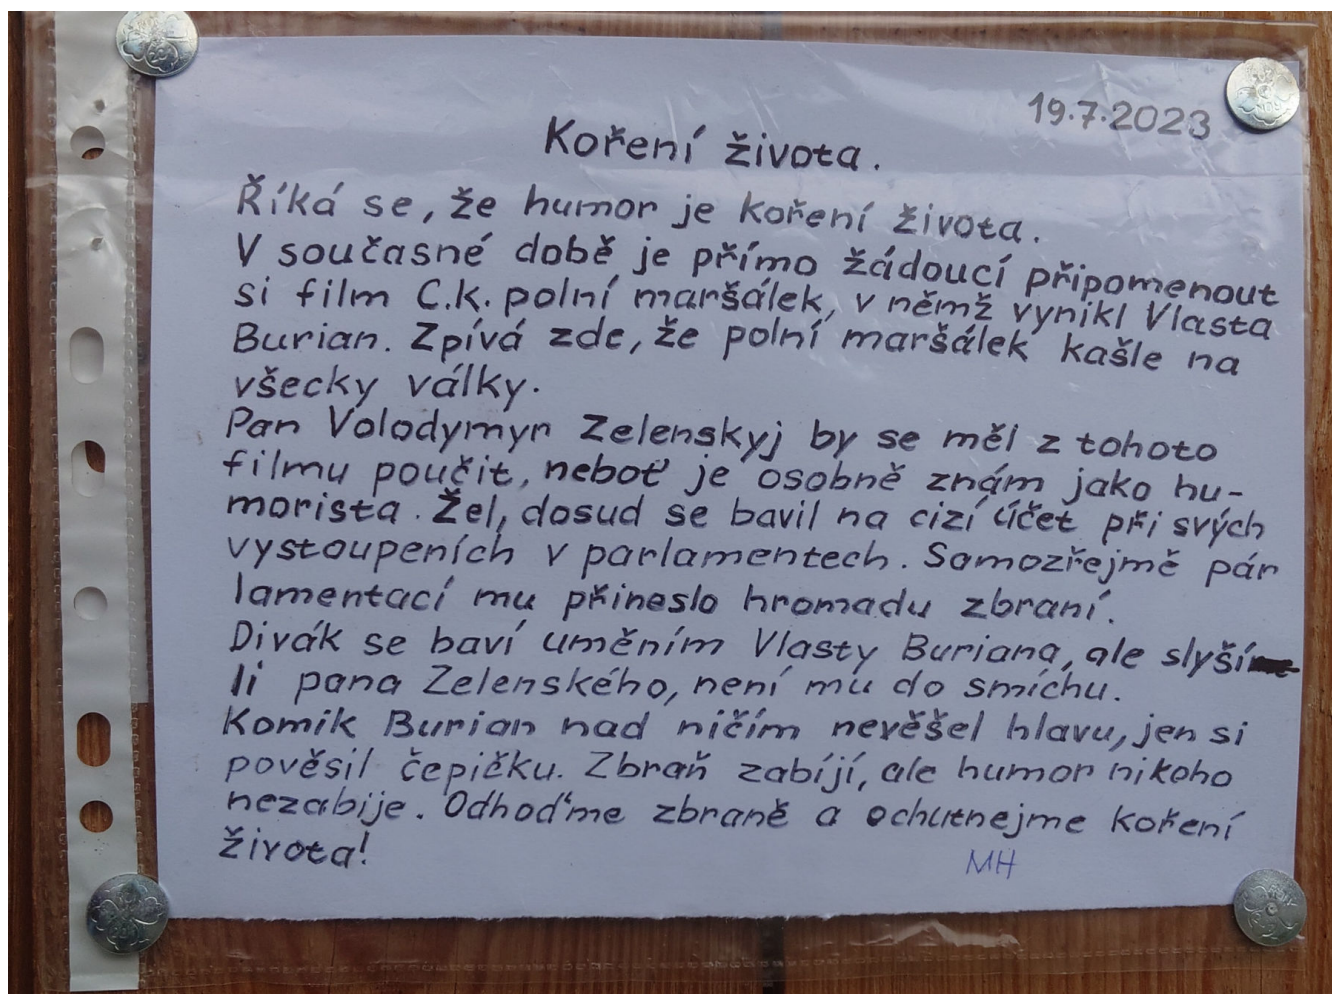 19.7.2023
Koření života.
Říká se, že humor je koření života.
V současné době je přímo žádoucí připomenout
si film C.k. polní maršálek, v němž vynikl Vlasta
Burian. Zpívá zde, že polní maršálek kašle na
všecky války.
Pan Volodymyr Zelenskyj by se měl z tohoto
filmu poučit, neboť je osobně znám jako hu-
morista. Žel, dosud se bavil na cizí účet při svých
vystoupeních v parlamentech. Samozřejmě pár
lamentací mu přineslo hromadu zbraní.
Divák se baví uměním Vlasty Buriana, ale slyší
li pana Zelenského, není mu do smíchu.
Komik Burian nad ničím nevěšel hlavu, jen si
pověsil čepičku. Zbraň zabíjí, ale humor nikoho
nezabije. Odhoďme zbraně a ochutnejme koření
života!
MH